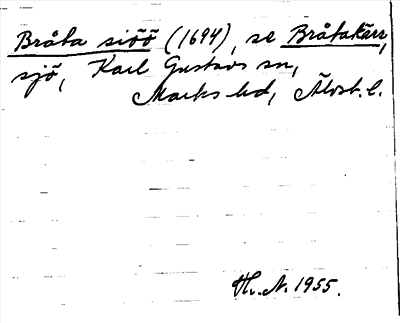 Bråta siöö (1694), se Bråtakärr,
sjö, Karl Gustavs sn,
Marks hd, Älvsb. l.
Th. N. 1955.